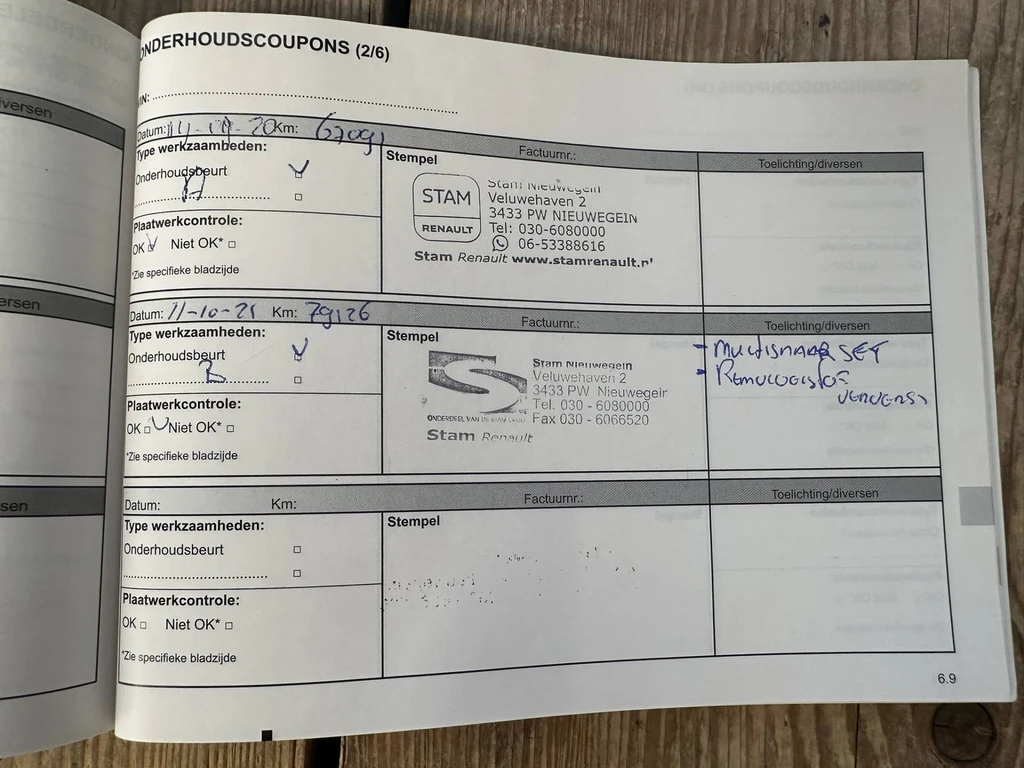 ONDERHOUDSCOUPONS (2/6)
Datum: 20 Km: 67091
Factuurnr.:
Toelichting/diversen
Type werkzaamheden:
Onderhoudsbeurt
A
Plaatwerkcontrole:
OK Niet OK*
*Zie specifieke bladzijde
Stempel
STAM
RENAULT
Stam Nieuwegein
Veluwehaven 2
3433 PW NIEUWEGEIN
Tel: 030-6080000
06-53388616
Stam Renault www.stamrenault.nl
Datum: 11-10-21 Km: 79126
Factuurnr.:
Toelichting/diversen
Type werkzaamheden:
Onderhoudsbeurt
B
Plaatwerkcontrole:
OK Niet OK*
*Zie specifieke bladzijde
Stempel
ONDERDEEL VAN DE
Stam Nieuwegein
Veluwehaven 2
3433 PW Nieuwegein
Tel. 030 - 6080000
Fax 030 - 6066520
Stam Renault
- MULTISNAAR SET
- REMVLOEISTOF
VERVERST
Datum: Km:
Factuurnr.:
Toelichting/diversen
Type werkzaamheden:
Onderhoudsbeurt
Plaatwerkcontrole:
OK Niet OK*
*Zie specifieke bladzijde
Stempel
6.9